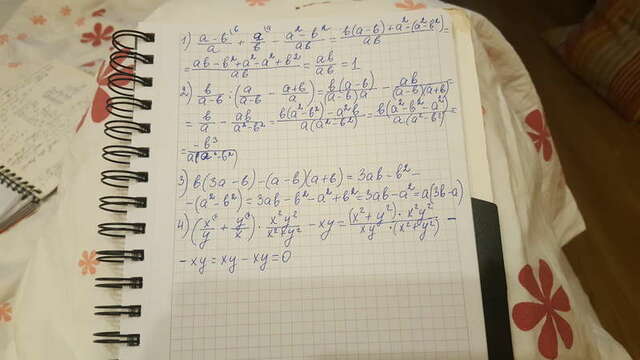 1) (a-b^b)/a + a^a/b - (a²-b²)/ab = (b(a-b)+a²-(a²-b²))/ab =
= (ab-b²+a²-a²+b²)/ab = ab/ab = 1
2) b/(a-b) : (a/(a-b) - (a+b)/a) = b(a-b)/(a-b)a - ab/(a-b)(a+b) =
= b/a - ab/(a²-b²) = (b(a²-b²)-a²b)/(a(a²-b²)) = b(a²-b²-a²)/(a(a²-b²)) =
= -b³/(a(a²-b²))
3) b(3a-b)-(a-b)(a+b)=3ab-b²-
-(a²-b²)=3ab-b²-a²+b²=3ab-a²=a(3b-a)
4) (x^x/y + y^y/x) · x²y²/(x²+y²) - xy = (x²+y²)·x²y²/(xy·(x²+y²)) -
- xy = xy - xy = 0